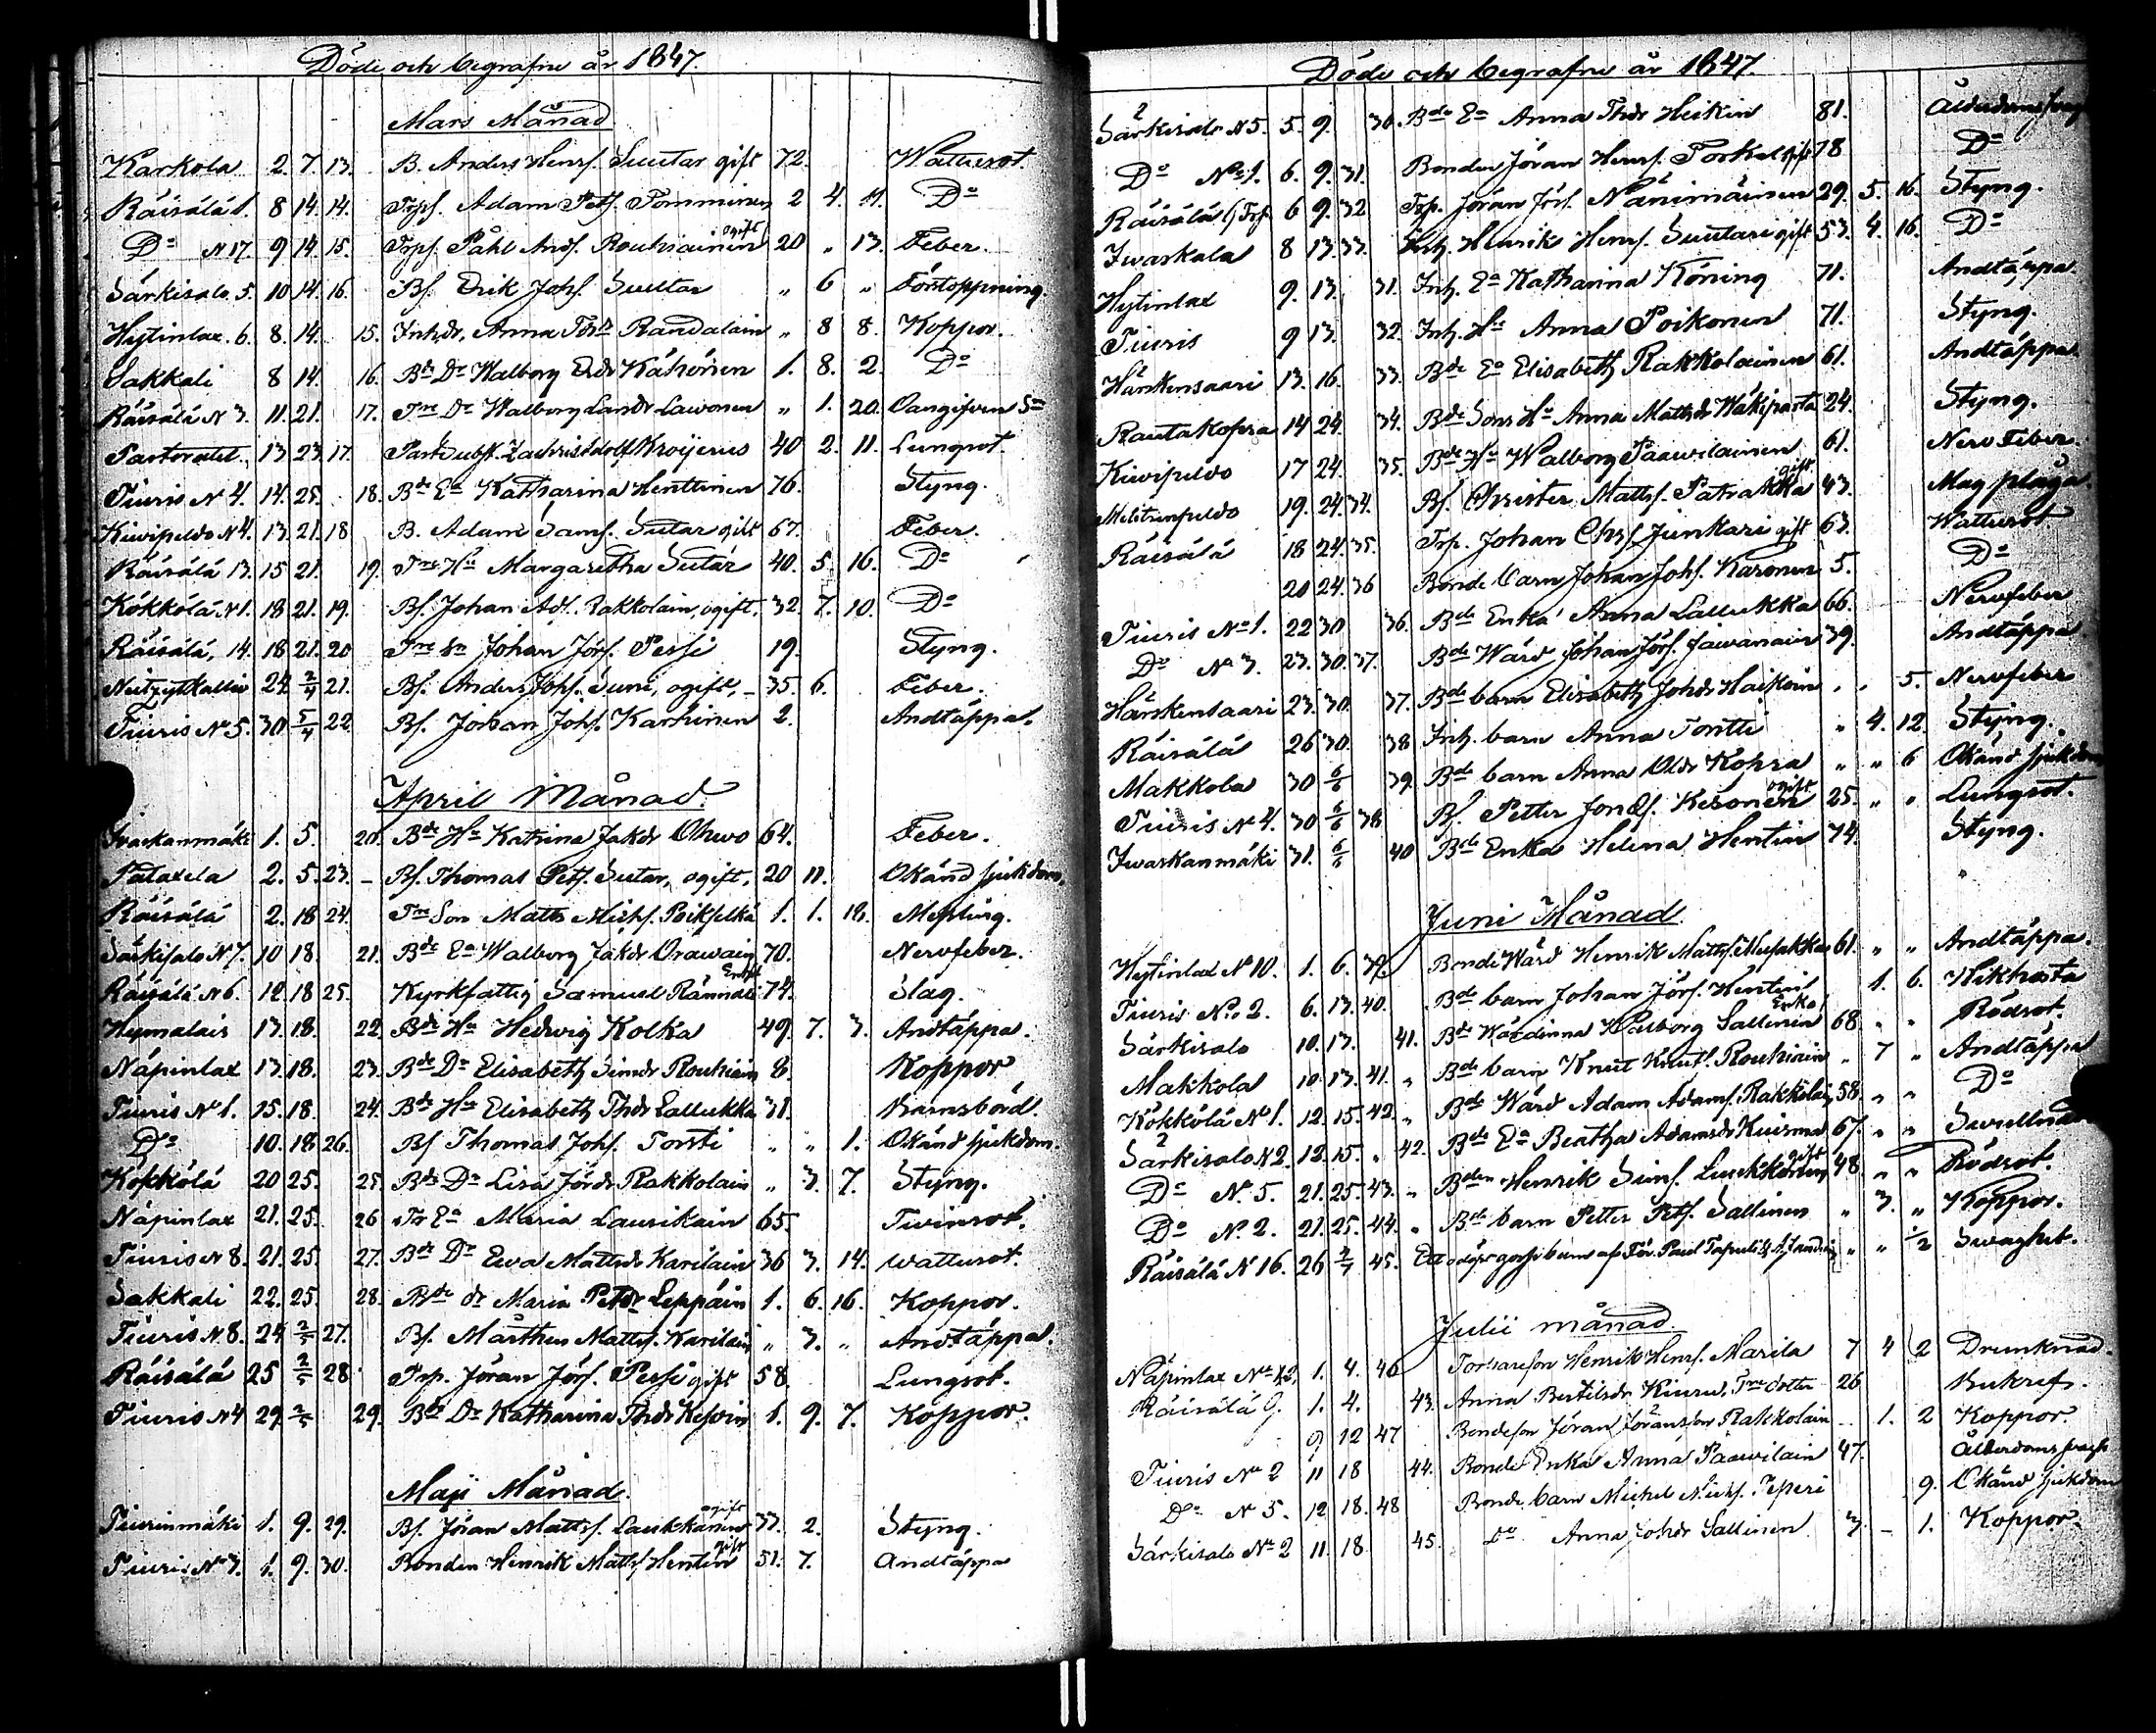 Döde och begrafne år 1847.
Mars Månad
Karkola 2. 7. 13. B. Anders Henrs. Suutar gift 72. Wattusot.
Räisälä 1. 8 14. 14. Trps. Adam Pets. Tomminen 2 4. 11. Do
Do N 17. 9 14 15. Trps. Påhl Ands. Rouhiainen ogift 20 " 13. Feber.
Särkisalo. 5. 10 14. 16. Bs. Erik Johs. Suutar " 6 " Förstoppning.
Hytinlax. 6. 8. 14. 15. Inhdr. Anna Randalain " 8 8. Koppor.
Sakkali 8 14. 16. Bde Dr Walborg Erdr Kähönen 1. 8. 2. Do
Räisälä N 3. 11. 21. 17. Tre Dr Walborg Lawonen " 1. 20. Oangifven
Pastoratet. 13 23 17. Zachris Adolf Kroijerus 40 2. 11. Lungsot.
Tiuris N 4. 14. 25. 18. Bde Ea Katharina Henttinen 76. Styng.
Kiwipeldo N 4. 13 21. 18 B. Adam Sams. Sutar gift 67. Feber.
Räisälä 13. 15 21. 19. Tre Hu Margaretha Sutar 40. 5. 16. Do
Kökkölä. N 1. 18 21. 19. Bs. Johan Ads. Rakkolain, ogift. 32. 7. 10. Do
Räisälä, 14. 18 21. 20 Tre Sn Johan Jörs. Pessi 19. Styng.
24 2/4 21. Bs. Anders Johs. Suni, ogift, 35. 6. Feber.
Tiuris N 5. 30 5/4 22 Bs. Johan Johs. Karhinen 2. Andtäppa.
April Månad.
Ivaskanmäki 1. 5. 20. Bde Hu Katrina Jakdr Ohwo 64. Feber.
2. 5. 23. Bs. Thomas Pets. Sutar, ogift. 20 11. Okänd sjukdom.
Räisälä 2. 18 24. Tre Son Matts Michs. Poikselkä 1. 1. 18. Mesling.
Särkisalo N 7. 10 18 21. Bde Ea Walborg Jakdr Orawain 70. Nervfeber.
Räisälä N 6. 12 18 25. Kyrkfattig Samuel Enkl 74. Slag.
13. 18. 22. Bde Hu Hedwig Kolka 49. 7. 3. Andtäppa.
Näpinlax 13. 18. 23. Bde Dr Elisabeth Simdr Rouhiain 8. Koppor
Tiuris No 1. 15. 18. 24. Bde Hu Elisabeth Thdr Lallukka 31. Barnsbörd.
Do 10. 18 26. Bs Thomas Johs. Torsti " " 1. Okänd sjukdom.
Kökkölä 20 25. 25. Bde Dr Lisa Jördr Rakkolain " 3. 7. Styng.
Näpinlax 21. 25. 26 Tr Ea Maria Laurikain 65. Twinsot.
Tiuris N 8. 21. 25. 27. Bde Dr Ewa Mattsdr Karilain 36 3. 14. Wattusot.
Sakkali 22. 25. 28. Bde dr Maria Petdr Leppäin 1. 6. 16. Koppor.
Tiuris N. 8. 24 2/5 27. Bs. Mårthen Matts. Karilain " 3. " Andtäppa.
Räisälä 25 2/5 28 Trp. Jöran Jörs. Pessi gift 58. Lungsot.
Tiuris N 4 29 2/5 29. Bde Dr Katharina Thdr Kesoin 1. 9. 7. Koppor.
Maji Månad.
Tiurinmäki 1. 9. 29. Bs. Jöran Matts. Laukkanen ogift 33. 2. Styng.
Tiuris No 3. 1. 9. 30. Bonden Henrik Matts Hentin gift 51. 7. Andtäppa
Döde och begrafne år 1847.
Särkisalo N 5. 5. 9. 30. Bde Ea Anna Thdr Heikin 81.
Do No 1. 6. 9. 31. Bonden Jöran Henrs. Torkel gift 78 Do
Räisälä 6 9. 32 Trp. Jöran Jörs. Nänimäinen 29. 5. 16. Styng.
Iwaskala 8 13. 33. Inh. Henrik Henrs. Suutari gift 53. 4. 16. Do
Hytinlax 9. 13. 31. Inh. Ea Katharina Köning 71. Andtäppa.
Tiuris 9 13. 32. Inh. Hu Anna Poikonen 71. Styng.
Härskensaari 13. 16. 33. Bde Ea Elisabeth Rakkolainen 61. Andtäppa.
Rautakopra 14 24. 34. Bde Sons Hu Anna Mattsdr Wäkiparta 24. Styng.
Kiwipeldo 17 24. 35. Bde Hu Walborg Paawilainen 61. Nerv Feber
19. 24. 34. Bs. Christer Matts. Patrakka gift 43. Mag plåga.
Räisälä 18 24. 35. Trp. Johan Chrs. Junkari gift 63. Wattusot.
20 24. 36 Bonde barn Johan Johs. Karonen 5. Do
Tiuris No 1. 22 30 36. Bde Enka Anna Lallukka 66. Nervfeber
Do No 3. 23. 30. 37. Bde Wärd Johan Jörs. Jäwanain 39. Andtäppa
Härskensaari 23. 30. 37. Bde barn Elisabeth Johdr Haikoin " " 5. Nervfeber
Räisälä 26 30. 38 Inh. barn Anna Tontti " 4. 12. Styng.
Makkola 30 6/6 39. Bde barn Anna Oldr Kopra " " 6 Okänd sjukdom
Tiuris N 4. 30 6/6 38 Bs. Petter Kesonen ogift 25. " " Lungsot.
Iwaskanmäki 31. 6/6 40 Bde Enka Helena Hentin 74. Styng.
Juni Månad.
Hytinlax No 10. 1. 6. 39. Bonde Wärd Henrik Matts. Musakka 61. " " Andtäppa.
Tiuris No. 2. 6. 13. 40. Bde barn Johan Jörs. Hentin 1. 6. Kikhosta
Särkisalo 10. 13. 41. Bde Wärdinna Walborg Sallinen Enka 68 " " Rödsot.
Makkola 10. 13. 41. " Bde barn Knut Knuts. Rouhiain " 7 " Andtäppa
Kökkölä No 1. 12. 15. 42. " Bde Wärd Adam Adams. Rakkolain 58. " " Do
Särkisalo N 2. 12. 15. " 42. Bde Ea Beatha Adamsdr Kuisma 67. " "
Do No. 5. 21. 25. 43. " Bden Henrik Sims. Luukkonen gift 48. " " Rödsot.
Do No. 2. 21. 25. 44. " Bde barn Petter Pets. Sallinen " 3. " Koppor.
Räisälä N 16. 26 2/7 45. Ett odöpt gosse barn af Paul " " 1/2 Swaghet.
Julii månad.
Näpinlax 1. 4. 46 Torpareson Henrik Henrs. Marila 7 4 2 Drunknad.
Räisälä 9. 1. 4. 43. Anna Bertilsdr Kiuru, Tre dotter 26
9 12 47 Bondeson Jöran Jöransson Rakkolain 1. 2 Koppor.
Tiuris No 2 11 18 44. Bonde Enka Anna Paawilain 47.
Do N 5. 12 18. 48 Bonde barn Michel Michs. Teperi 9. Okänd sjukdom
Särkisalo No 2 11. 18. 45. Do Anna Johdr Sallinen 3. - 1. Koppor.